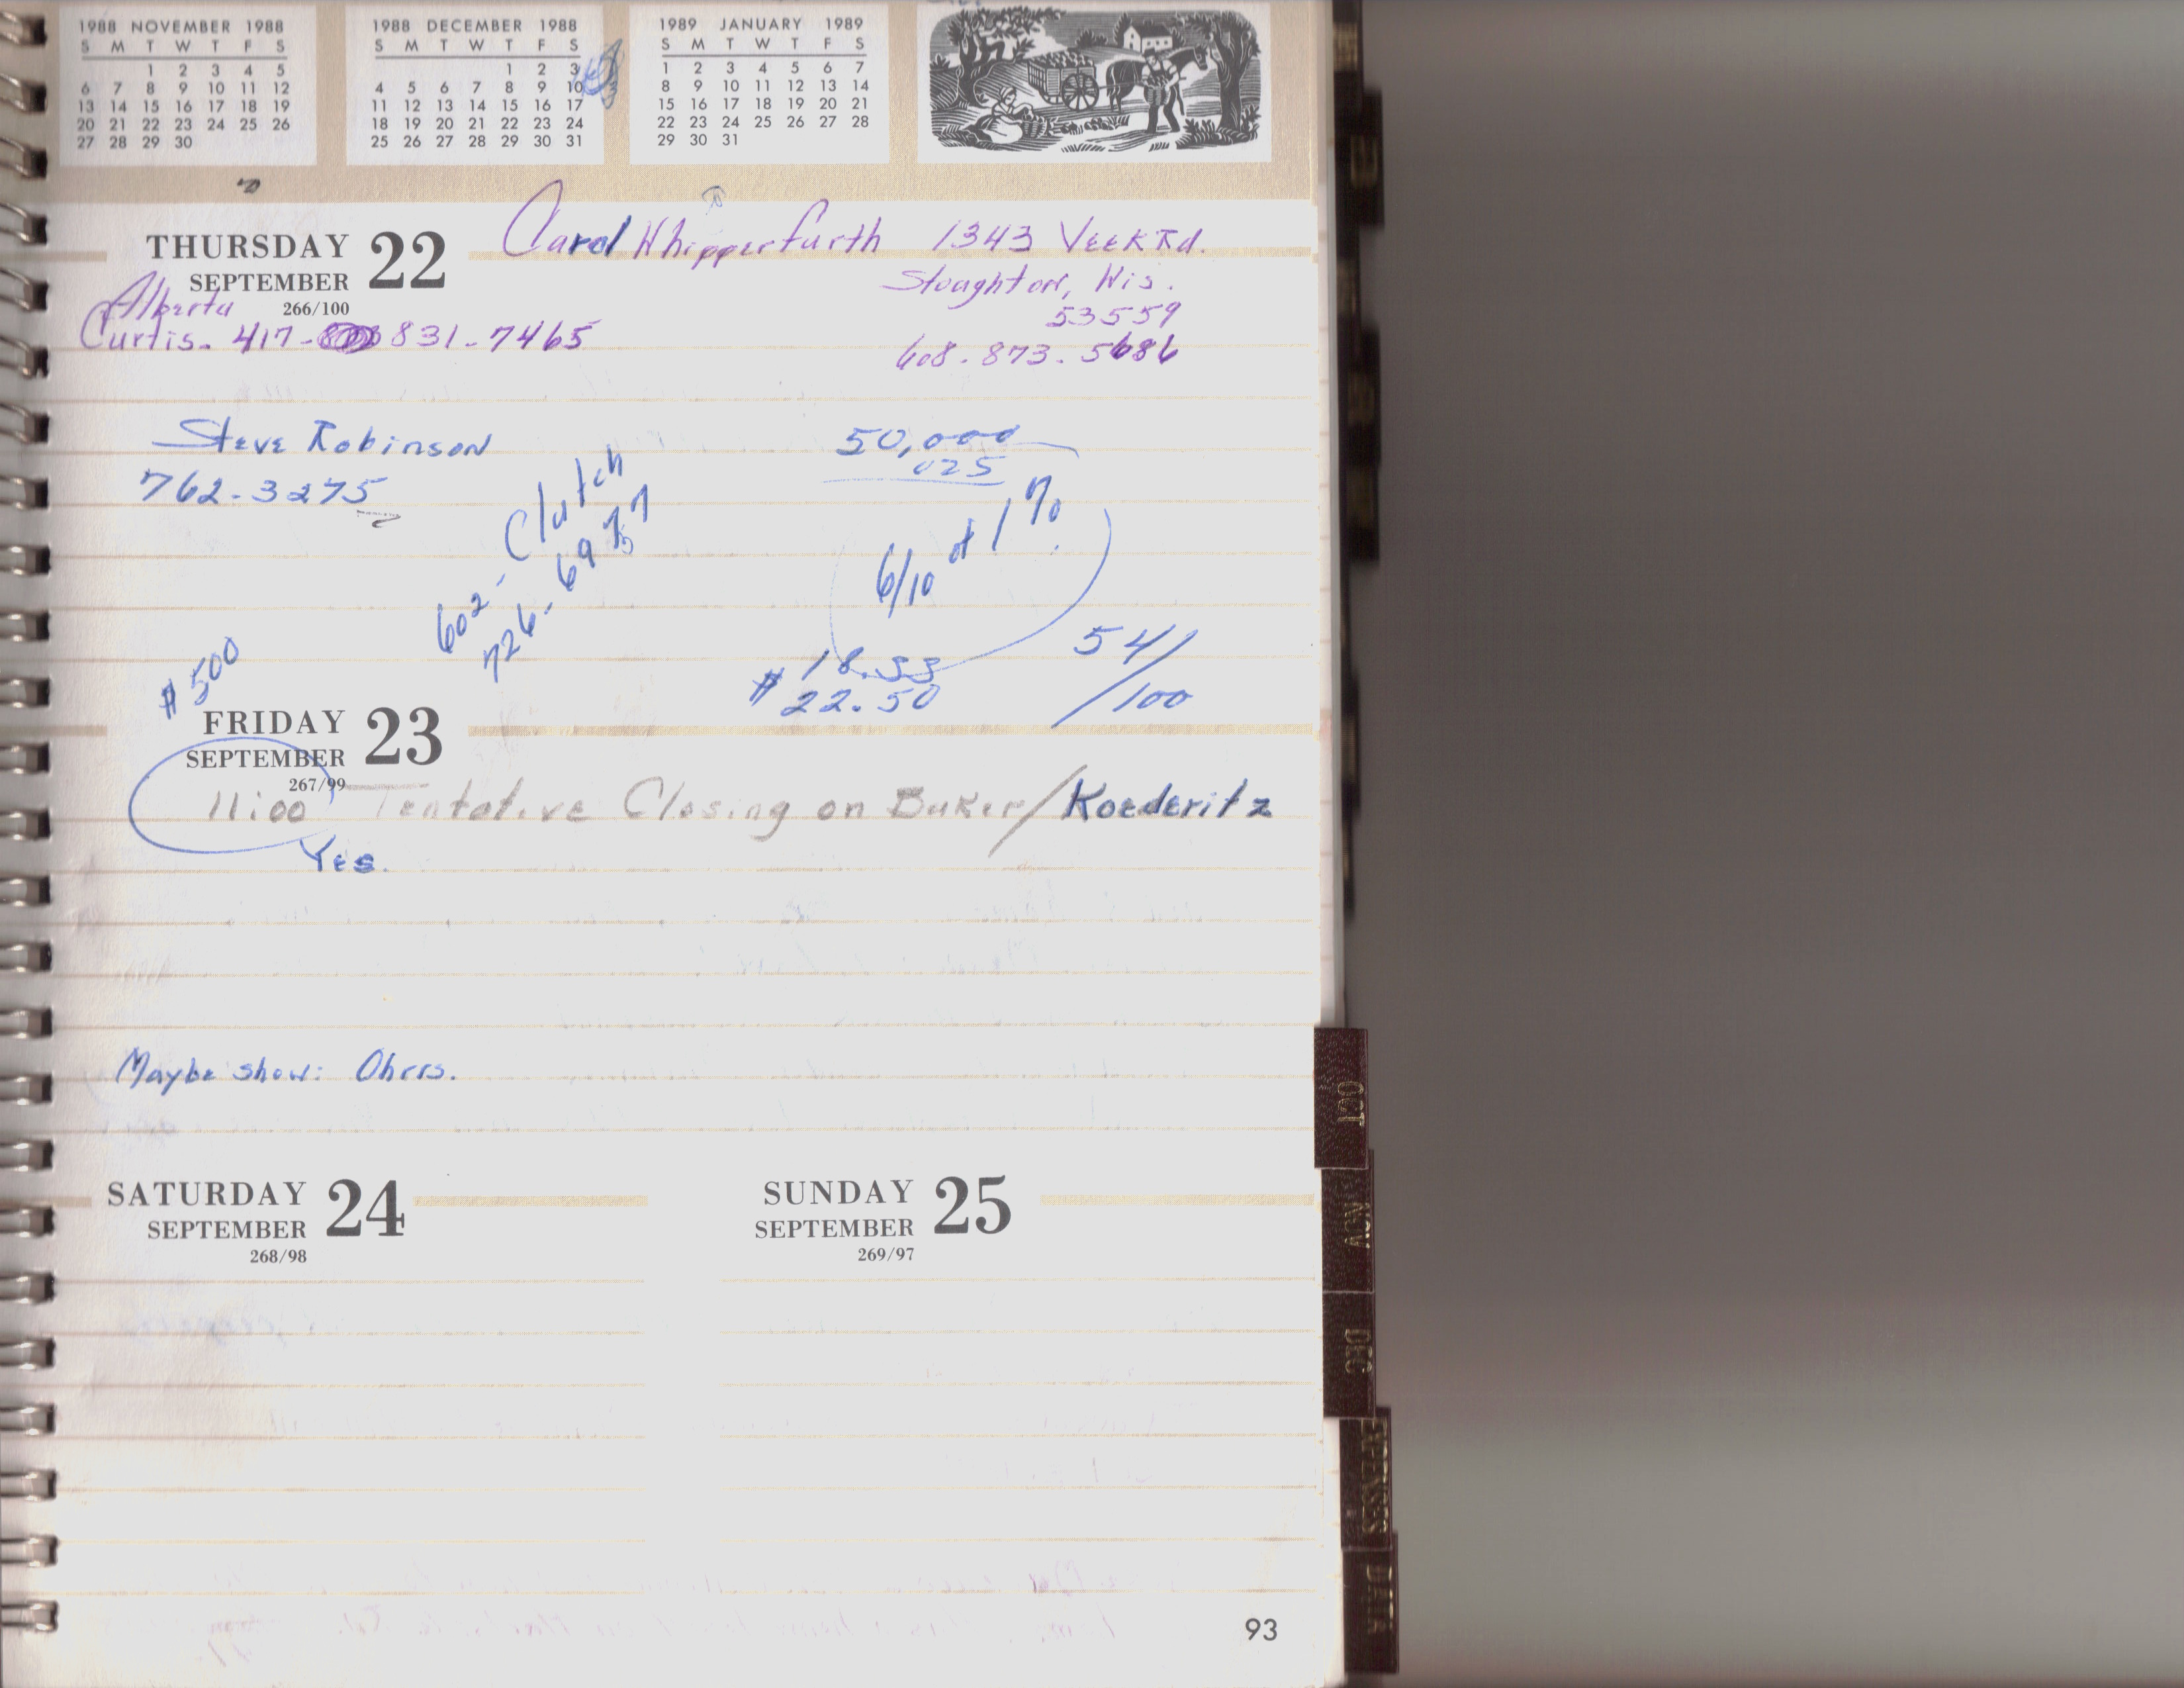 1988 NOVEMBER 1988
S M T W T F S
1 2 3 4 5
6 7 8 9 10 11 12
13 14 15 16 17 18 19
20 21 22 23 24 25 26
27 28 29 30
1988 DECEMBER 1988
S M T W T F S
1 2 3
4 5 6 7 8 9 10
11 12 13 14 15 16 17
18 19 20 21 22 23 24
25 26 27 28 29 30 31
1989 JANUARY 1989
S M T W T F S
1 2 3 4 5 6 7
8 9 10 11 12 13 14
15 16 17 18 19 20 21
22 23 24 25 26 27 28
29 30 31
THURSDAY 22
SEPTEMBER
266/100
Carol Whipperfurth 1343 Veek Rd.
Stoughton, Wis.
53559
608-873-5686
Alberta
Curtis. 417- 831-7465
Steve Robinson
762-3275
Clutch
602-
726-
50,000
025
6/10 of 1%
$18.33
22.50
54/
/100
$500
FRIDAY 23
SEPTEMBER
267/99
11:00 Tentative Closing on Baker/Koederitz
Yes.
Maybe show: Ohrrs.
SATURDAY 24
SEPTEMBER
268/98
SUNDAY 25
SEPTEMBER
269/97
OCT
NOV
DEC
EXPENSES
DATA
93